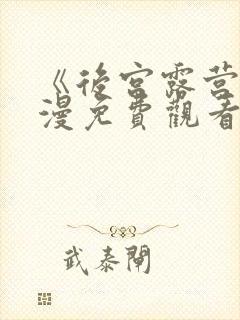 《後宮露營
漫免費觀看
武泰閘